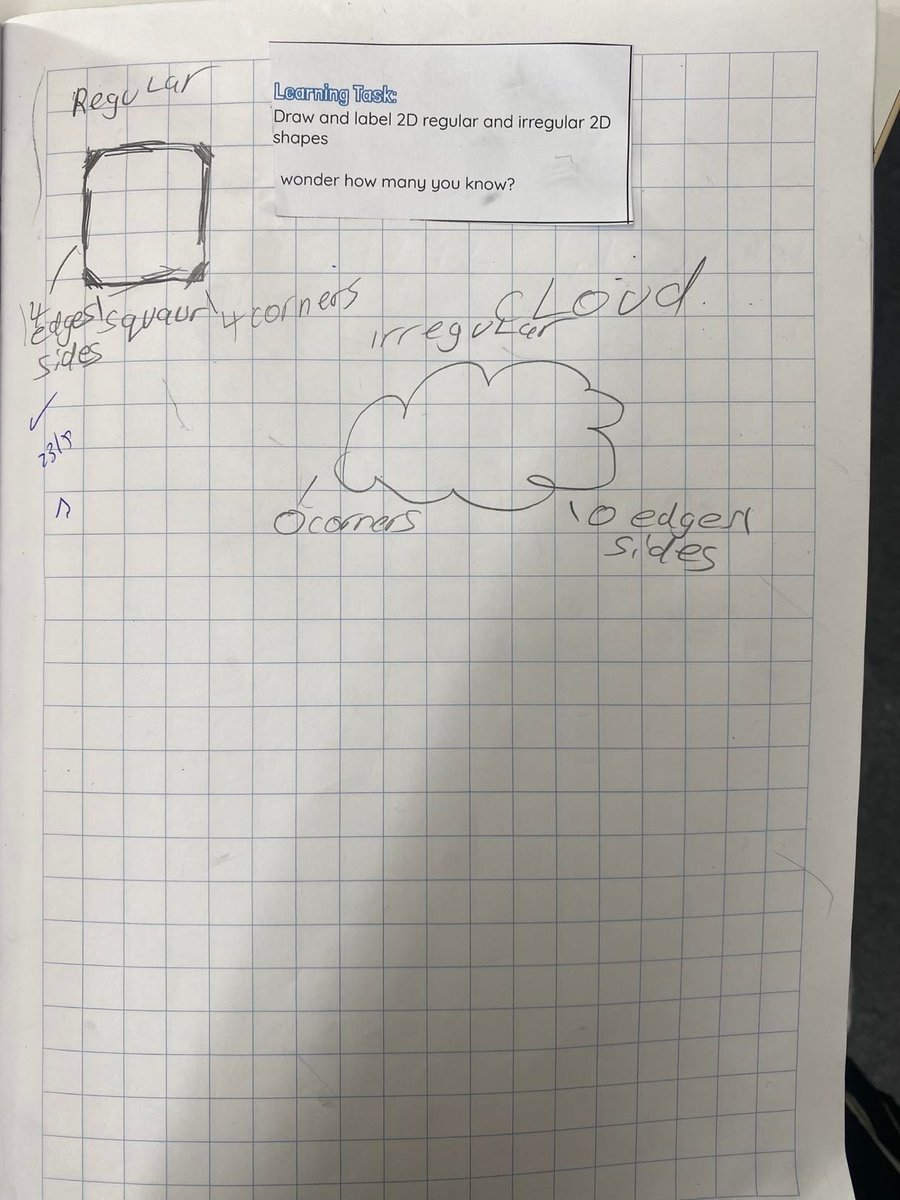 Regular
Learning Task:
Draw and label 2D regular and irregular 2D
shapes
wonder how many you know?
4
edges\ squaur\ 4 corners
sides
cLoud.
irreguLar
0 corners
10 edges\
sides